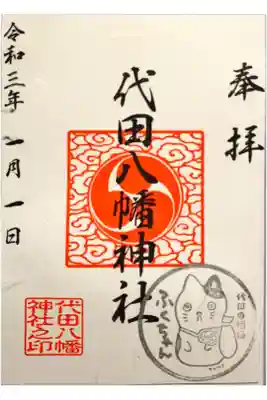 奉拝
代田八幡神社
令和三年 一月一日
代田八幡
神社之印
ふくちゃん